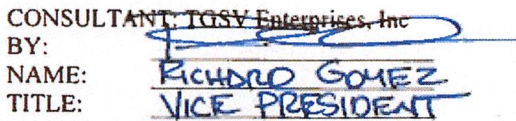 CONSULTANT: TGSV Enterprises, Inc
BY:
NAME: RICHARD GOMEZ
TITLE: VICE PRESIDENT